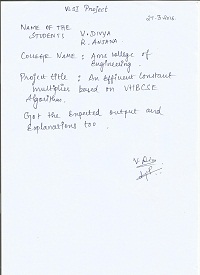 VLSI Project
21-3-2016
NAME OF THE
STUDENTS V. DIVYA
R. ANJANA
COLLEGE NAME : Ams college of
Engineering.
Project title : An efficient Constant
multiplier based on VHBCSE
Algorithm.
Got the Expected output and
Explanations too.